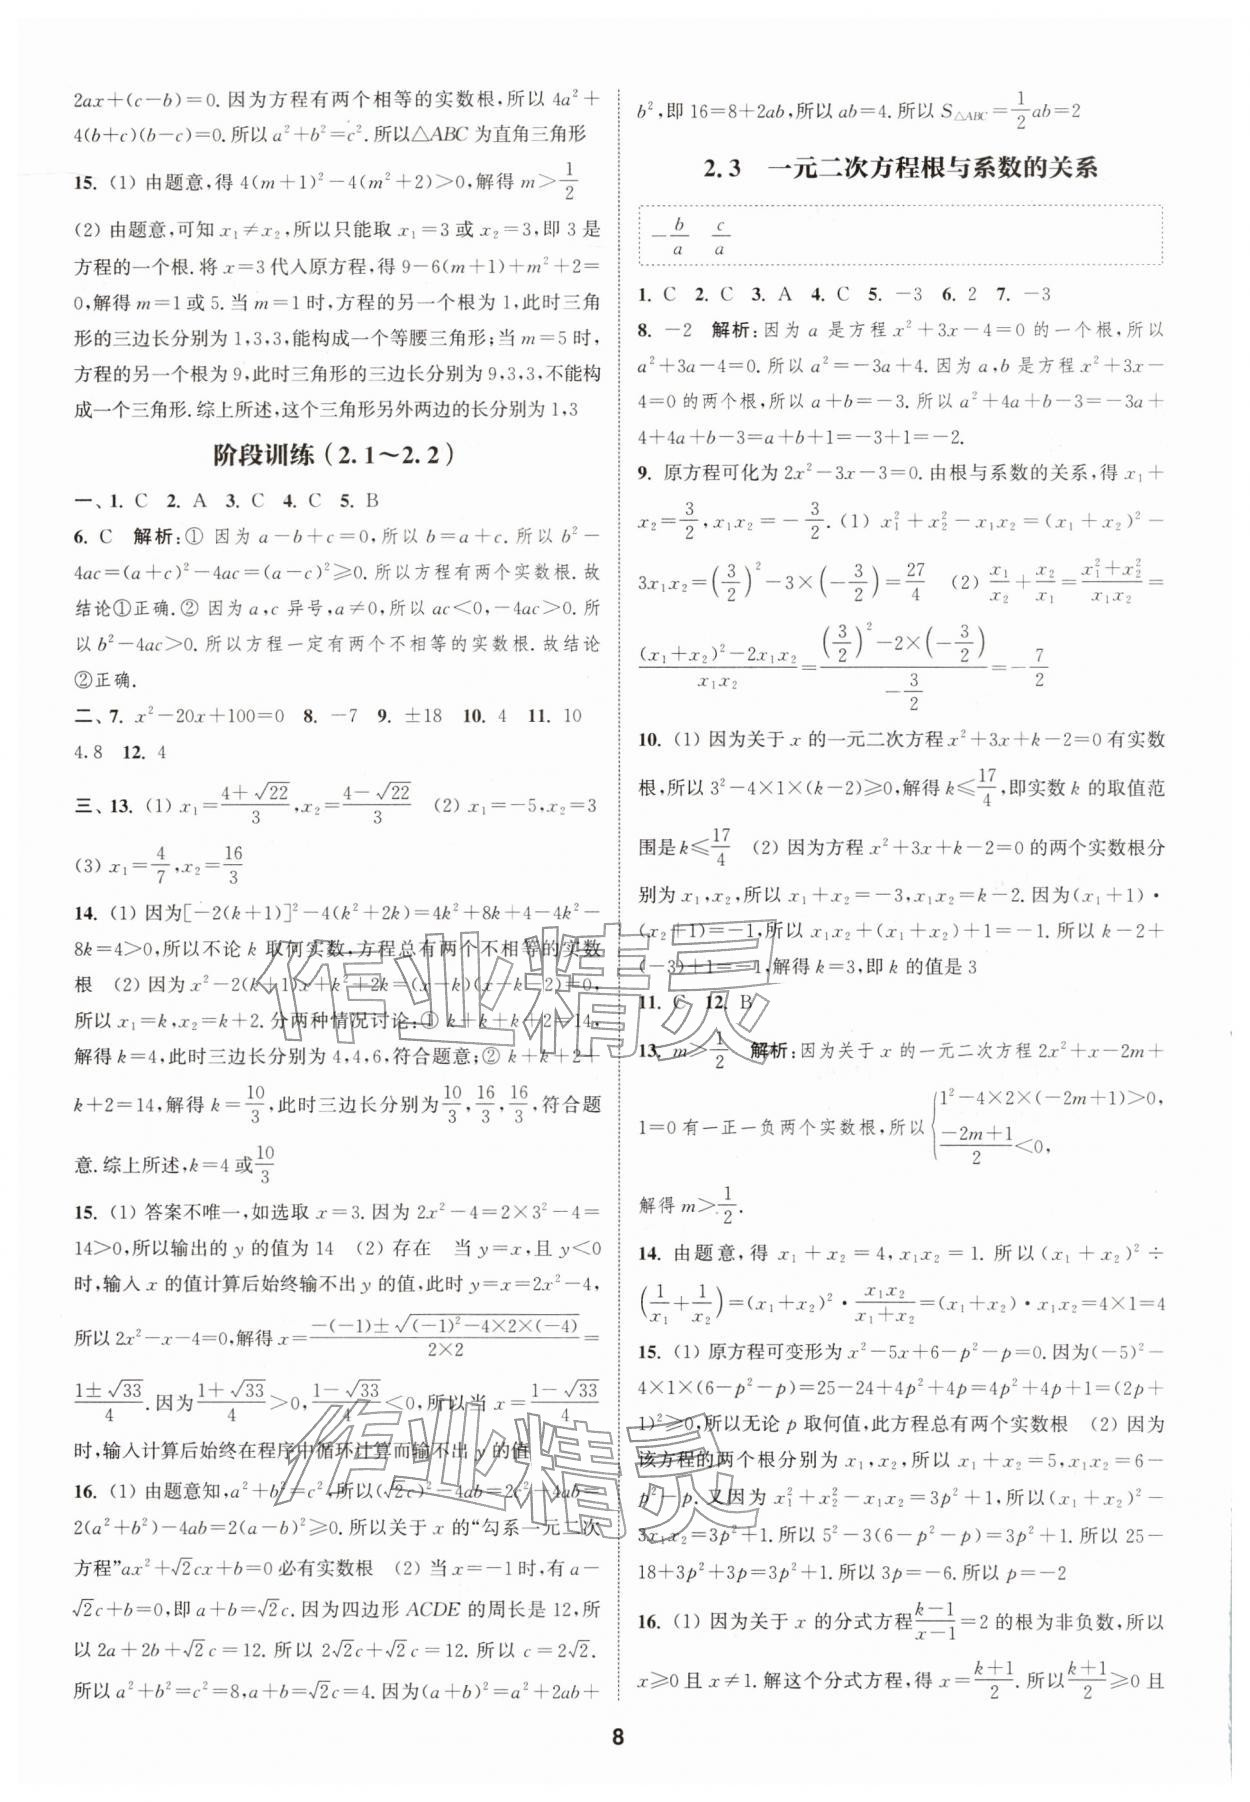 2ax+(c-b)=0. 因为方程有两个相等的实数根,所以 4a²+
4(b+c)(b-c)=0. 所以 a²+b²=c². 所以△ABC 为直角三角形
15. (1) 由题意,得 4(m+1)²-4(m²+2)>0,解得 m>1/2
(2) 由题意,可知 x₁≠x₂,所以只能取 x₁=3 或 x₂=3,即 3 是
方程的一个根. 将 x=3 代入原方程,得 9-6(m+1)+m²+2=
0,解得 m=1 或 5. 当 m=1 时,方程的另一个根为 1,此时三角
形的三边长分别为 1,3,3,能构成一个等腰三角形;当 m=5 时,
方程的另一个根为 9,此时三角形的三边长分别为 9,3,3,不能构
成一个三角形. 综上所述,这个三角形另外两边的长分别为 1,3
阶段训练(2.1～2.2)
一、1. C 2. A 3. C 4. C 5. B
6. C 解析:① 因为 a-b+c=0,所以 b=a+c. 所以 b²-
4ac=(a+c)²-4ac=(a-c)²≥0. 所以方程有两个实数根. 故
结论①正确. ② 因为 a,c 异号,a≠0,所以 ac<0,-4ac>0. 所
以 b²-4ac>0. 所以方程一定有两个不相等的实数根. 故结论
②正确.
二、7. x²-20x+100=0 8. -7 9. ±18 10. 4 11. 10
4.8 12. 4
三、13. (1) x₁=(4+√22)/3,x₂=(4-√22)/3 (2) x₁=-5,x₂=3
(3) x₁=4/7,x₂=16/3
14. (1) 因为[-2(k+1)]²-4(k²+2k)=4k²+8k+4-4k²-
8k=4>0,所以不论 k 取何实数,方程总有两个不相等的实数
根 (2) 因为 x²-2(k+1)x+k²+2k=(x-k)(x-k-2)=0,
所以 x₁=k,x₂=k+2. 分两种情况讨论:① k+k+k+2=14,
解得 k=4,此时三边长分别为 4,4,6,符合题意;② k+k+2+
k+2=14,解得 k=10/3,此时三边长分别为10/3,16/3,16/3,符合题
意. 综上所述,k=4 或10/3
15. (1) 答案不唯一,如选取 x=3. 因为 2x²-4=2×3²-4=
14>0,所以输出的 y 的值为 14 (2) 存在 当 y=x,且 y<0
时,输入 x 的值计算后始终输不出 y 的值,此时 y=x=2x²-4,
所以 2x²-x-4=0,解得 x=(-(-1)±√((-1)²-4×2×(-4)))/(2×2)=
(1±√33)/4. 因为(1+√33)/4>0,(1-√33)/4<0,所以当 x=(1-√33)/4
时,输入计算后始终在程序中循环计算而输不出 y 的值
16. (1) 由题意知,a²+b²=c²,所以(√2c)²-4ab=2c²-4ab=
2(a²+b²)-4ab=2(a-b)²≥0. 所以关于 x 的“勾系一元二次
方程”ax²+√2cx+b=0 必有实数根 (2) 当 x=-1 时,有 a-
√2c+b=0,即 a+b=√2c. 因为四边形 ACDE 的周长是 12,所
以 2a+2b+√2c=12. 所以 2√2c+√2c=12. 所以 c=2√2.
所以 a²+b²=c²=8,a+b=√2c=4. 因为(a+b)²=a²+2ab+
b²,即 16=8+2ab,所以 ab=4. 所以 S△ABC=1/2ab=2
2.3 一元二次方程根与系数的关系
-b/a c/a
1. C 2. C 3. A 4. C 5. -3 6. 2 7. -3
8. -2 解析:因为 a 是方程 x²+3x-4=0 的一个根,所以
a²+3a-4=0. 所以 a²=-3a+4. 因为 a,b 是方程 x²+3x-
4=0 的两个根,所以 a+b=-3. 所以 a²+4a+b-3=-3a+
4+4a+b-3=a+b+1=-3+1=-2.
9. 原方程可化为 2x²-3x-3=0. 由根与系数的关系,得 x₁+
x₂=3/2,x₁x₂=-3/2. (1) x₁²+x₂²-x₁x₂=(x₁+x₂)²-
3x₁x₂=(3/2)²-3×(-3/2)=27/4 (2) x₁/x₂+x₂/x₁=(x₁²+x₂²)/(x₁x₂)=
((x₁+x₂)²-2x₁x₂)/(x₁x₂)=((3/2)²-2×(-3/2))/(-3/2)=-7/2
10. (1) 因为关于 x 的一元二次方程 x²+3x+k-2=0 有实数
根,所以 3²-4×1×(k-2)≥0,解得 k≤17/4,即实数 k 的取值范
围是 k≤17/4 (2) 因为方程 x²+3x+k-2=0 的两个实数根分
别为 x₁,x₂,所以 x₁+x₂=-3,x₁x₂=k-2. 因为(x₁+1)·
(x₂+1)=-1,所以 x₁x₂+(x₁+x₂)+1=-1. 所以 k-2+
(-3)+1=-1,解得 k=3,即 k 的值是 3
11. C 12. B
13. m>1/2 解析:因为关于 x 的一元二次方程 2x²+x-2m+
1=0 有一正一负两个实数根,所以{1²-4×2×(-2m+1)>0, (-2m+1)/2<0,
解得 m>1/2.
14. 由题意,得 x₁+x₂=4,x₁x₂=1. 所以(x₁+x₂)²÷
(1/x₁+1/x₂)=(x₁+x₂)²·x₁x₂/(x₁+x₂)=(x₁+x₂)·x₁x₂=4×1=4
15. (1) 原方程可变形为 x²-5x+6-p²-p=0. 因为(-5)²-
4×1×(6-p²-p)=25-24+4p²+4p=4p²+4p+1=(2p+
1)²≥0,所以无论 p 取何值,此方程总有两个实数根 (2) 因为
该方程的两个根分别为 x₁,x₂,所以 x₁+x₂=5,x₁x₂=6-
p²-p. 又因为 x₁²+x₂²-x₁x₂=3p²+1,所以(x₁+x₂)²-
3x₁x₂=3p²+1. 所以 5²-3(6-p²-p)=3p²+1. 所以 25-
18+3p²+3p=3p²+1. 所以 3p=-6. 所以 p=-2
16. (1) 因为关于 x 的分式方程(k-1)/(x-1)=2 的根为非负数,所以
x≥0 且 x≠1. 解这个分式方程,得 x=(k+1)/2. 所以(k+1)/2≥0 且
8
作业精灵
作业精灵